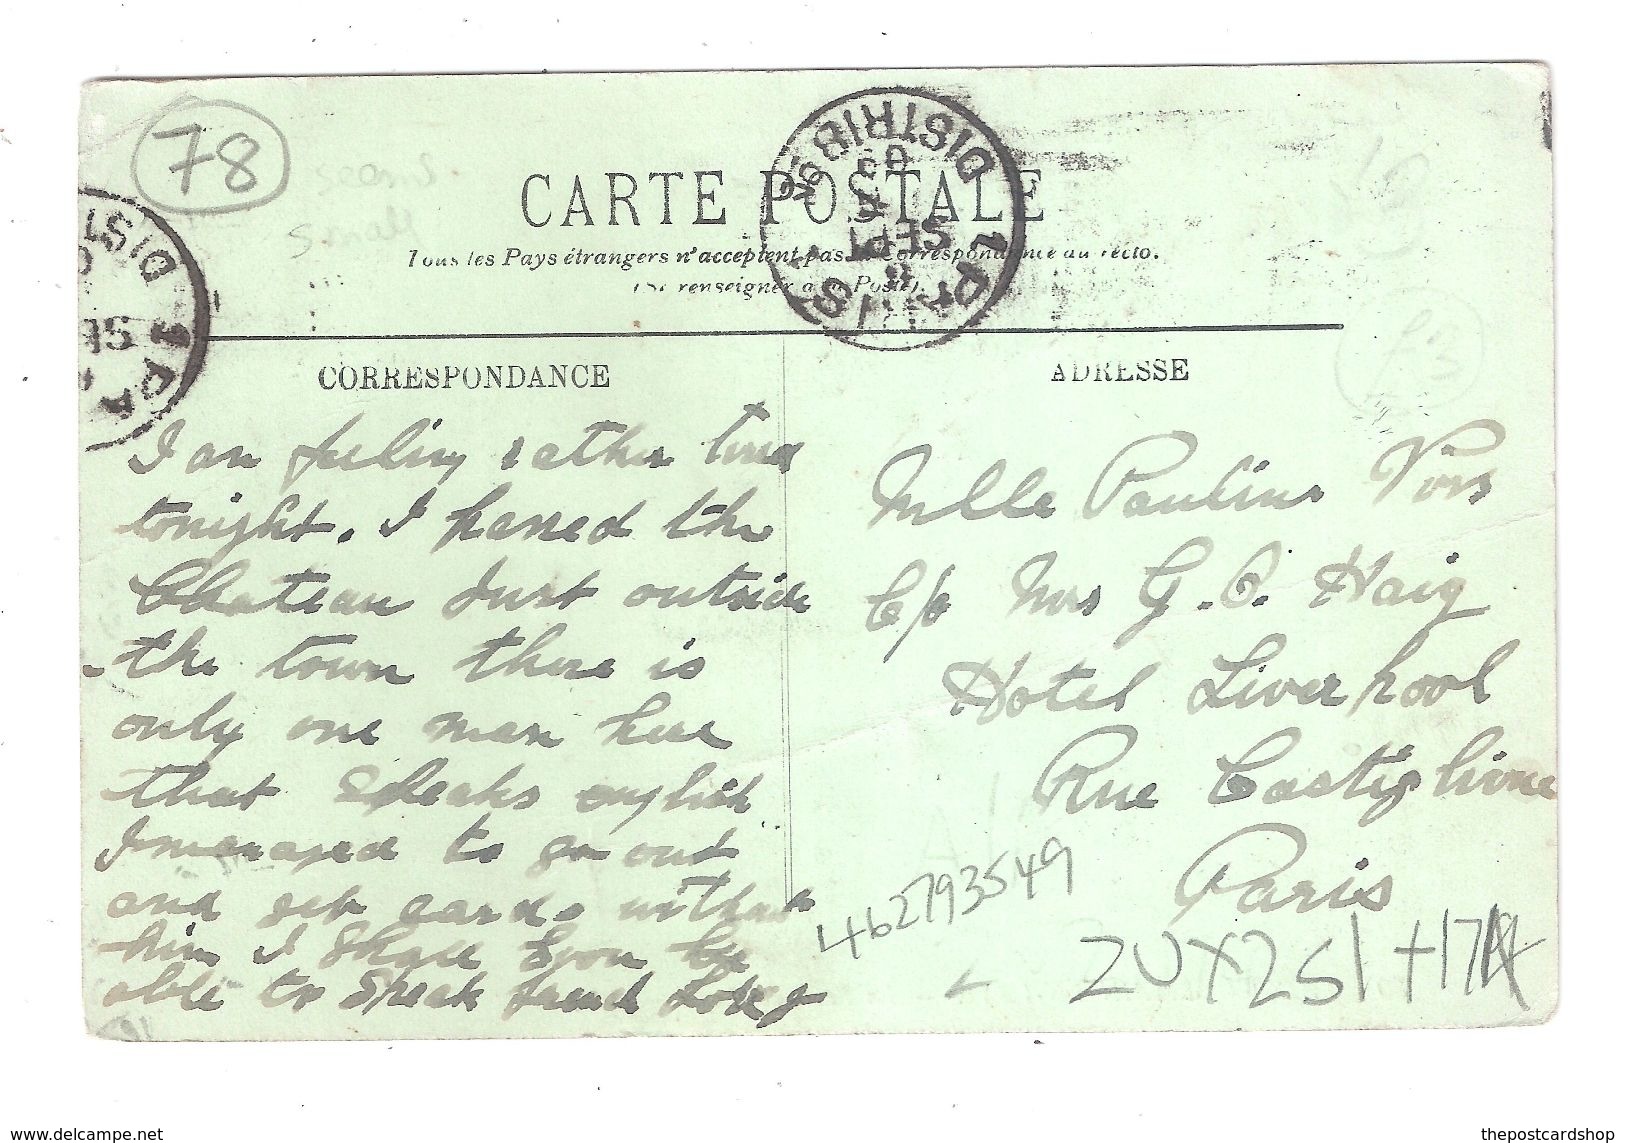 78
seans
small
CARTE POSTALE
Tous les Pays étrangers n'acceptent pas la correspondance au recto.
(Se renseigner à la Poste).
PARIS DISTRIBON
SEPT
09
DIST
1 PA
SE
CORRESPONDANCE
ADRESSE
I am feeling rather tired
tonight. I passed the
Chateau Just outside
the town there is
only one man here
that speaks english
I managed to go out
and get cards without
him I shall soon be
able to speak french
Mlle Pauline
C/o Mrs G. O. Haig
Hotel Liverpool
Rue Castiglione
Paris
462793549
www.delcampe.net
thepostcardshop